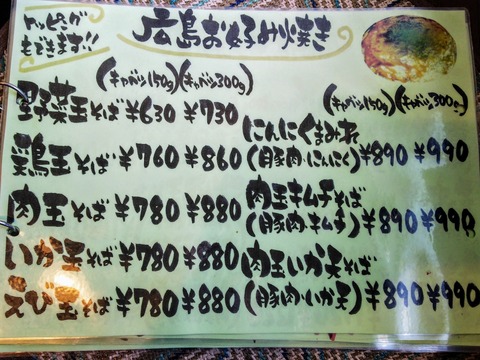 トッピングが
もできます!!
広島お好み焼き
(キャベツ150g)(キャベツ300g)
野菜玉そば ¥630 ¥730
鶏玉そば ¥760 ¥860
肉玉そば ¥780 ¥880
いか玉そば ¥780 ¥880
えび玉そば ¥780 ¥880
(キャベツ150g)(キャベツ300g)
にんにくまみれ
(豚肉・にんにく) ¥890 ¥990
肉玉キムチそば
(豚肉・キムチ) ¥890 ¥990
肉玉いか天そば
(豚肉・いか天) ¥890 ¥990